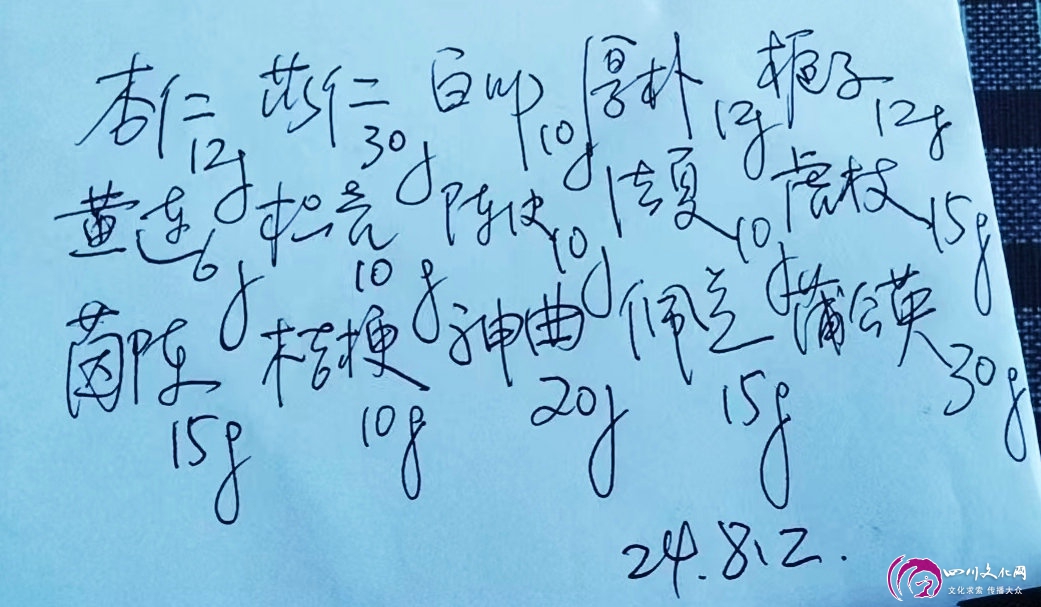 杏仁12g 苡仁30g 白叩10g 厚朴12g 栀子12g
黄连6g 枳壳10g 陈皮10g 法夏10g 虎杖15g
茵陈15g 桔梗10g 神曲20g 佩兰15g 蒲公英30g
24.8.2.
四川文化网
文化求索 传播大众